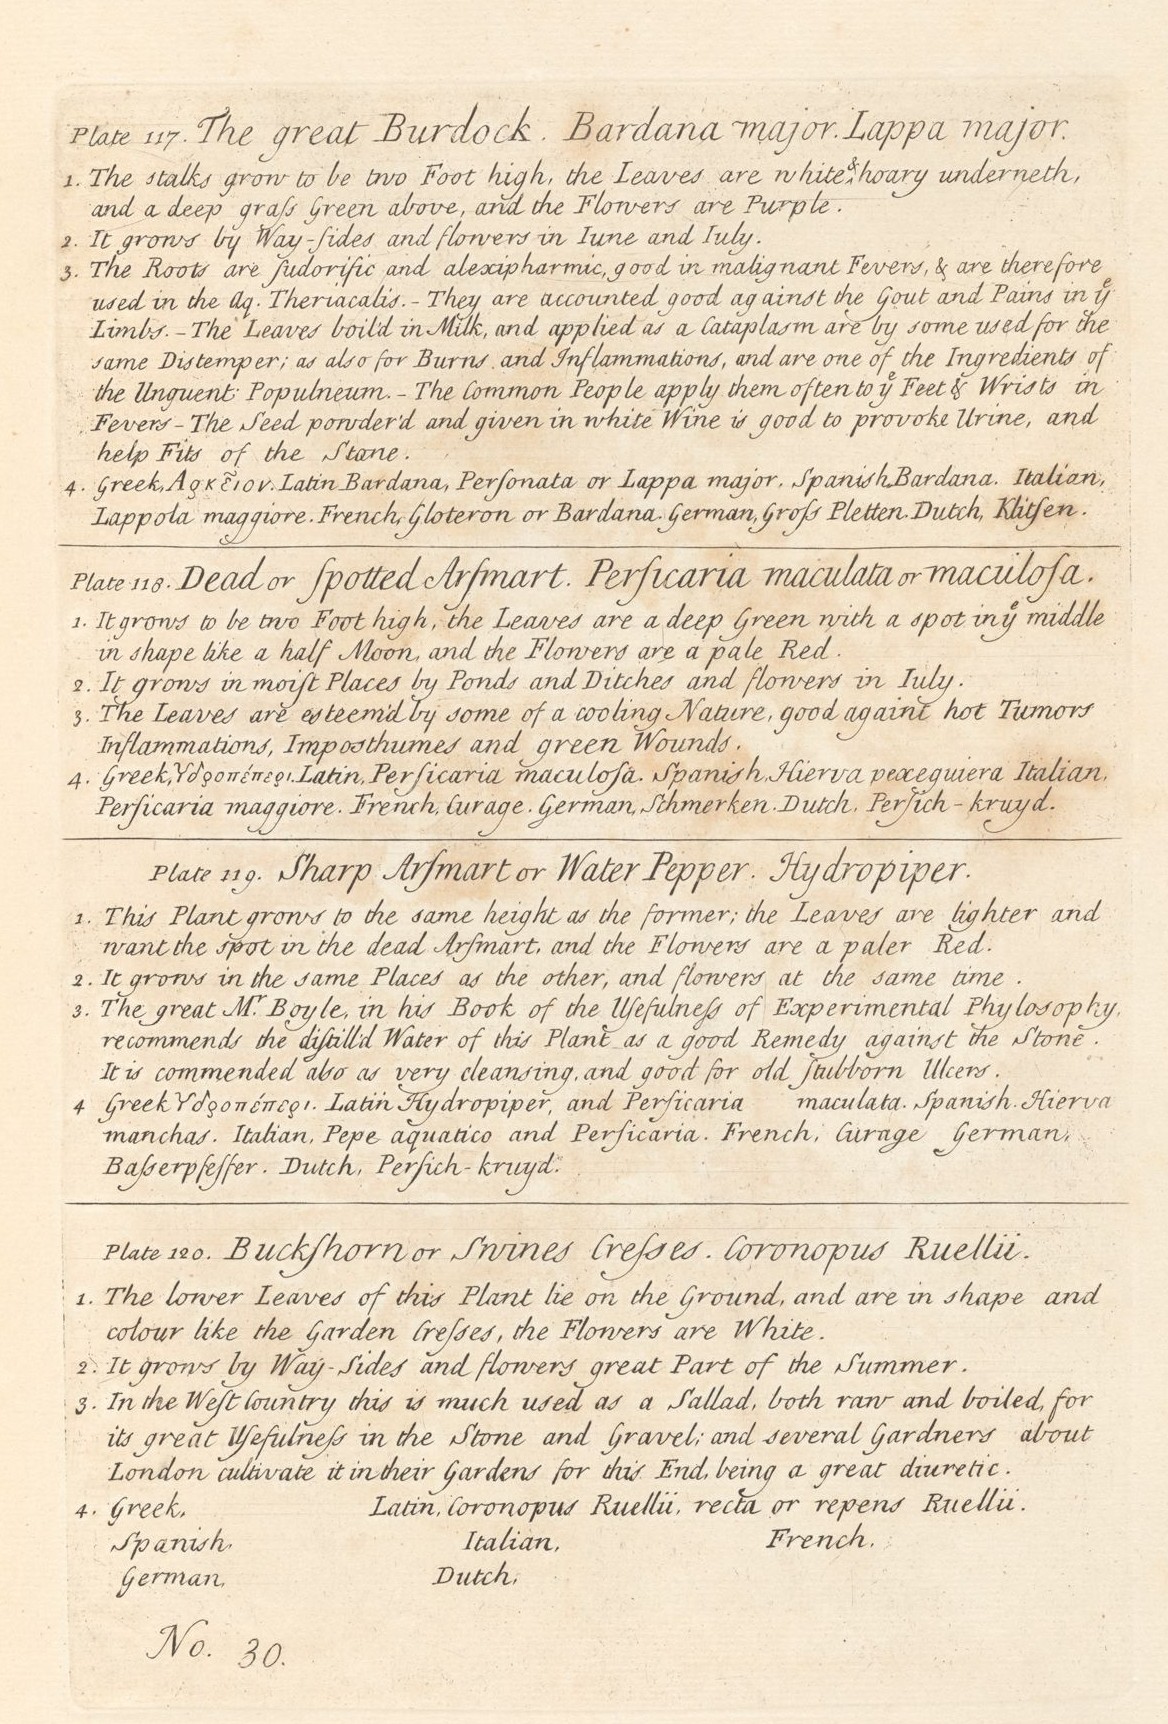 Plate 117. The great Burdock. Bardana major. Lappa major.
1. The stalks grow to be two Foot high, the Leaves are white & hoary underneth,
and a deep graſs Green above, and the Flowers are Purple.
2. It grows by Way-ſides and flowers in Iune and Iuly.
3. The Roots are ſudorific and alexipharmic, good in malignant Fevers, & are therefore
used in the Aq. Theriacalis. - They are accounted good against the Gout and Pains in yᵉ
Limbs. - The Leaves boil'd in Milk, and applied as a Cataplasm are by some used for the
same Distemper; as also for Burns and Inflammations, and are one of the Ingredients of
the Unguent: Populneum. - The Common People apply them often to yᵉ Feet & Wrists in
Fevers - The Seed powder'd and given in white Wine is good to provoke Urine, and
help Fits of the Stone.
4. Greek, Αρκεῖον. Latin Bardana, Perſonata or Lappa major. Spanish, Bardana. Italian,
Lappola maggiore. French, Gloteron or Bardana. German, Groſs Pletten. Dutch, Klitſen.
Plate 118. Dead or ſpotted Arſmart. Perſicaria maculata or maculoſa.
1. It grows to be two Foot high, the Leaves are a deep Green with a spot in yᵉ middle
in shape like a half Moon, and the Flowers are a pale Red.
2. It grows in moiſt Places by Ponds and Ditches and flowers in Iuly.
3. The Leaves are esteem'd by some of a cooling Nature, good againt hot Tumors
Inflammations, Imposthumes and green Wounds.
4. Greek, Υδροπέπερι. Latin, Perſicaria maculoſa. Spanish, Hierva pexeguiera Italian,
Perſicaria maggiore. French, Curage. German, Schmerken. Dutch, Perſich-kruyd.
Plate 119. Sharp Arſmart or Water Pepper. Hydropiper.
1. This Plant grows to the same height as the former; the Leaves are lighter and
want the spot in the dead Arſmart, and the Flowers are a paler Red.
2. It grows in the same Places as the other, and flowers at the same time.
3. The great Mr. Boyle, in his Book of the Uſefulneſs of Experimental Phylosophy,
recommends the diſtill'd Water of this Plant as a good Remedy against the Stone.
It is commended also as very cleansing, and good for old ſtubborn Ulcers.
4 Greek Υδροπέπερι. Latin Hydropiper, and Perſicaria maculata. Spanish. Hierva
manchas. Italian, Pepe aquatico and Perſicaria. French, Curage German,
Baſserpfeffer. Dutch, Perſich-kruyd.
Plate 120. Buckſhorn or Swines Creſses. Coronopus Ruellii.
1. The lower Leaves of this Plant lie on the Ground, and are in shape and
colour like the Garden Creſses, the Flowers are White.
2. It grows by Way-Sides and flowers great Part of the Summer.
3. In the Weſt Country this is much used as a Sallad, both raw and boiled, for
its great Uſefulneſs in the Stone and Gravel; and several Gardners about
London cultivate it in their Gardens for this End, being a great diuretic.
4. Greek, Latin, Coronopus Ruellii, recta or repens Ruellii.
Spanish, Italian, French,
German, Dutch,
No. 30.